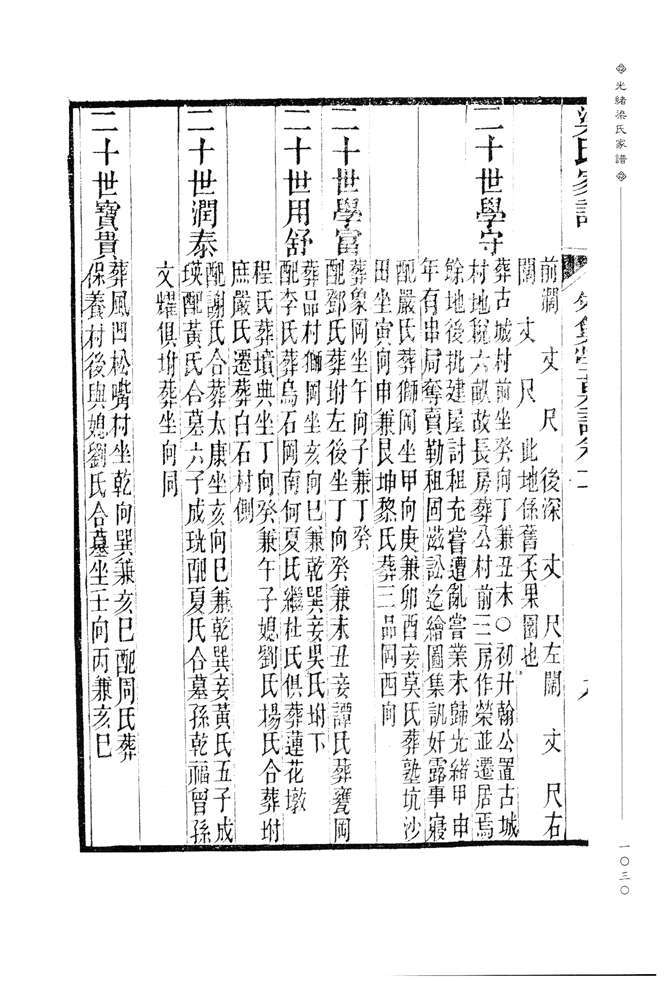 光緒梁氏家譜
一〇三〇
梁氏家譜
前濶 丈 尺 後深 丈 尺左闊 丈 尺右
闊 丈 尺 此地係舊 果園也
二十世學守
葬古城村前坐癸向丁兼丑未〇初升翰公置古城
村地稅六畝故長房葬公村前二三房作榮並遷居焉
餘地後批建屋討租充嘗遭亂嘗業未歸光緒甲申
年有串局奪賣勒租固滋訟迄繪圖集訊奸露事寢
配嚴氏葬獅岡坐甲向庚兼卯酉妾莫氏葬塾坑沙
田坐寅向申兼艮坤黎氏葬三品岡西向
二十世學富
葬象岡坐午向子兼丁癸
配鄧氏葬坿左後坐丁向癸兼未丑妾譚氏葬甕岡
二十世用舒
葬品村獅岡坐亥向巳兼乾巽妾吳氏坿下
配李氏葬烏石岡南何夏氏繼杜氏俱葬蓮花墩
程氏葬墳典坐丁向癸兼午子媳劉氏楊氏合葬坿
庶嚴氏遷葬白石村側
二十世潤泰
配謝氏合葬太康坐亥向巳兼乾巽妾黃氏五子成
瑛配黃氏合墓六子成珖配夏氏合墓孫乾福曾孫
文燿俱坿葬坐向同
二十世寶貫
葬風凹松嘴村坐乾向巽兼亥巳配周氏葬
保養村後與媳劉氏合墓坐壬向丙兼亥巳